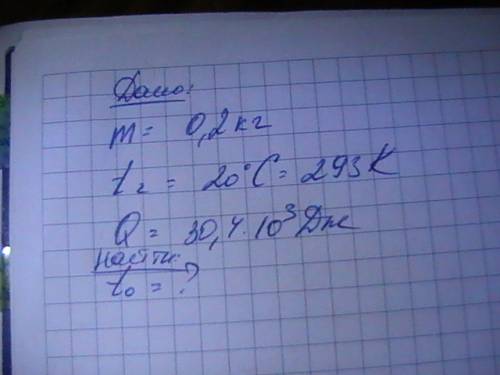 Дано:
m = 0,2 кг
t₂ = 20°C = 293 K
Q = 30,4 · 10³ Дж
Найти:
t₀ = ?